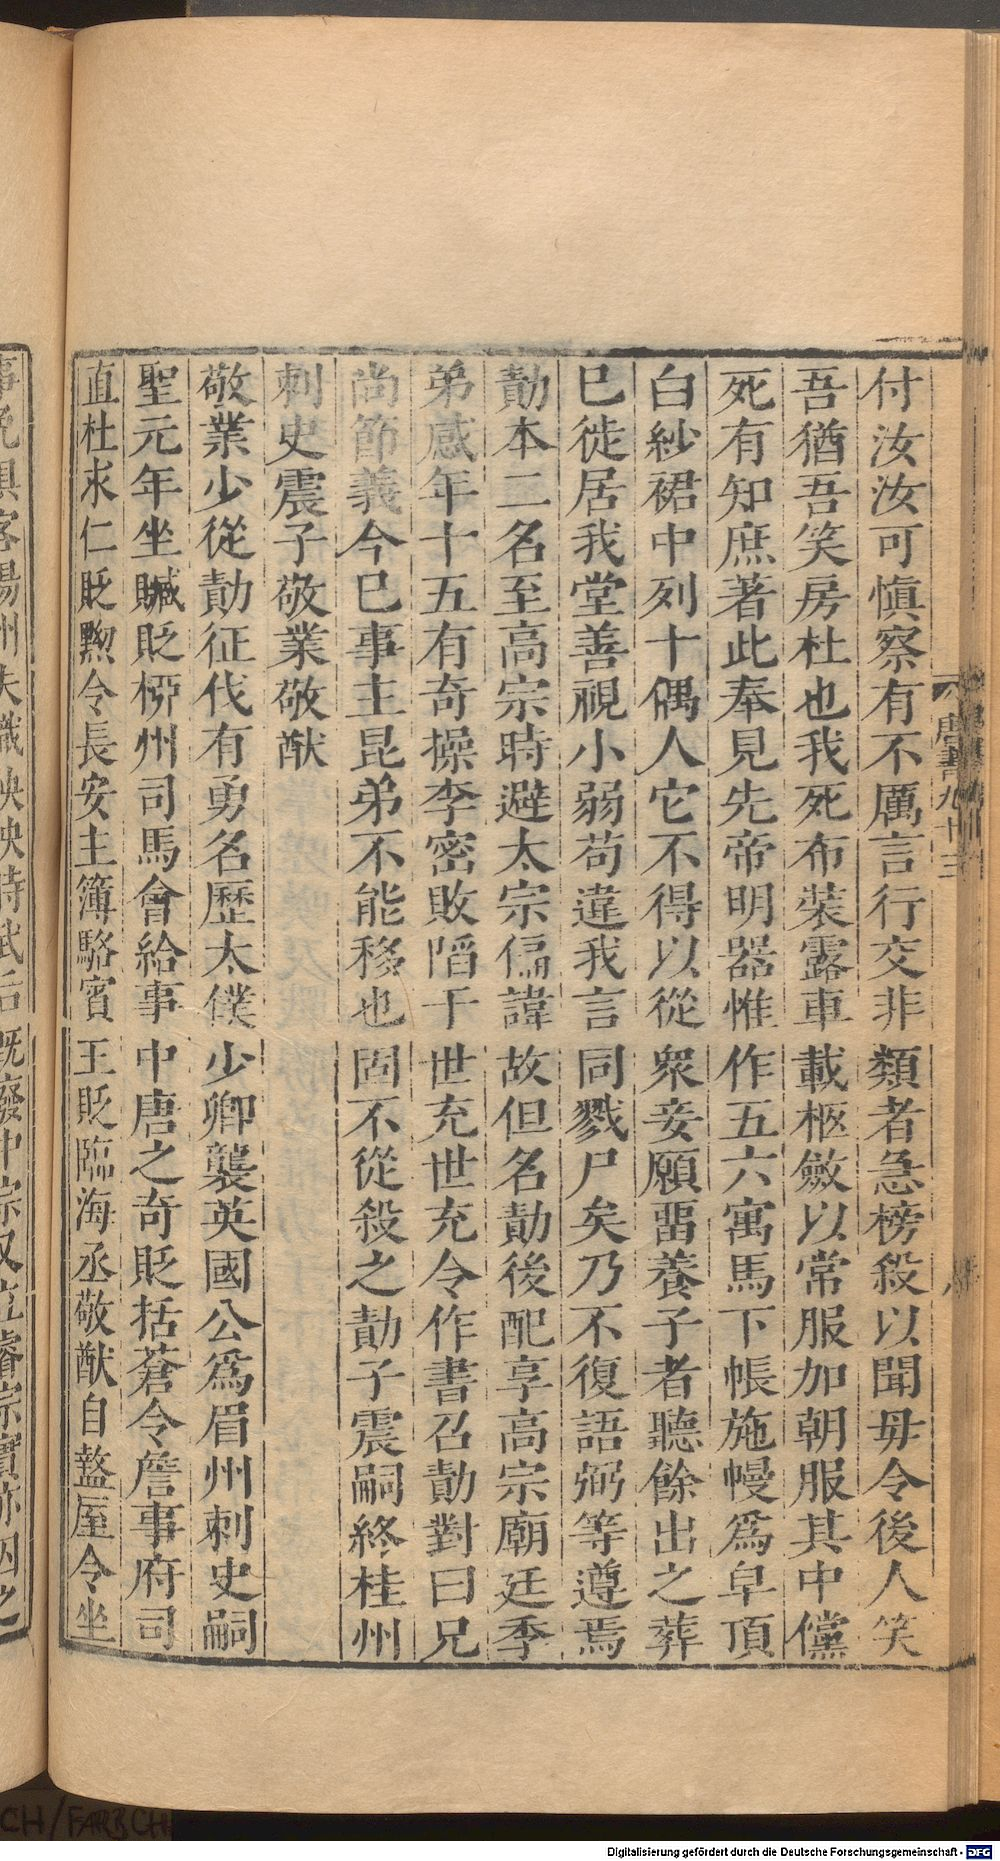 唐書九十三
付汝汝可愼察有不厲言行交非類者急榜殺以聞毋令後人笑
吾猶吾笑房杜也我死布裝露車載柩斂以常服加朝服其中儻
死有知庶著此奉見先帝明器惟作五六寓馬下帳施幔爲皁頂
白紗裙中列十偶人它不得以從衆妾願畱養子者聽餘出之葬
已徙居我堂善視小弱苟違我言同戮尸矣乃不復語弼等遵焉
勣本二名至高宗時避太宗偏諱故但名勣後配享高宗廟廷季
弟感年十五有奇操李密敗陷于世充世充令作書召勣對曰兄
尚節義今已事主昆弟不能移也固不從殺之勣子震嗣終桂州
刺史震子敬業敬猷
敬業少從勣征伐有勇名歷太僕少卿襲英國公爲眉州刺史嗣
聖元年坐贓貶栁州司馬會給事中唐之奇貶括蒼令詹事府司
直杜求仁貶黟令長安主簿駱賓王貶臨海丞敬猷自盩厔令坐
事免俱客揚州失職怏怏時武后旣廢中宗又立睿宗實亦囚之
Digitalisierung gefördert durch die Deutsche Forschungsgemeinschaft - DFG